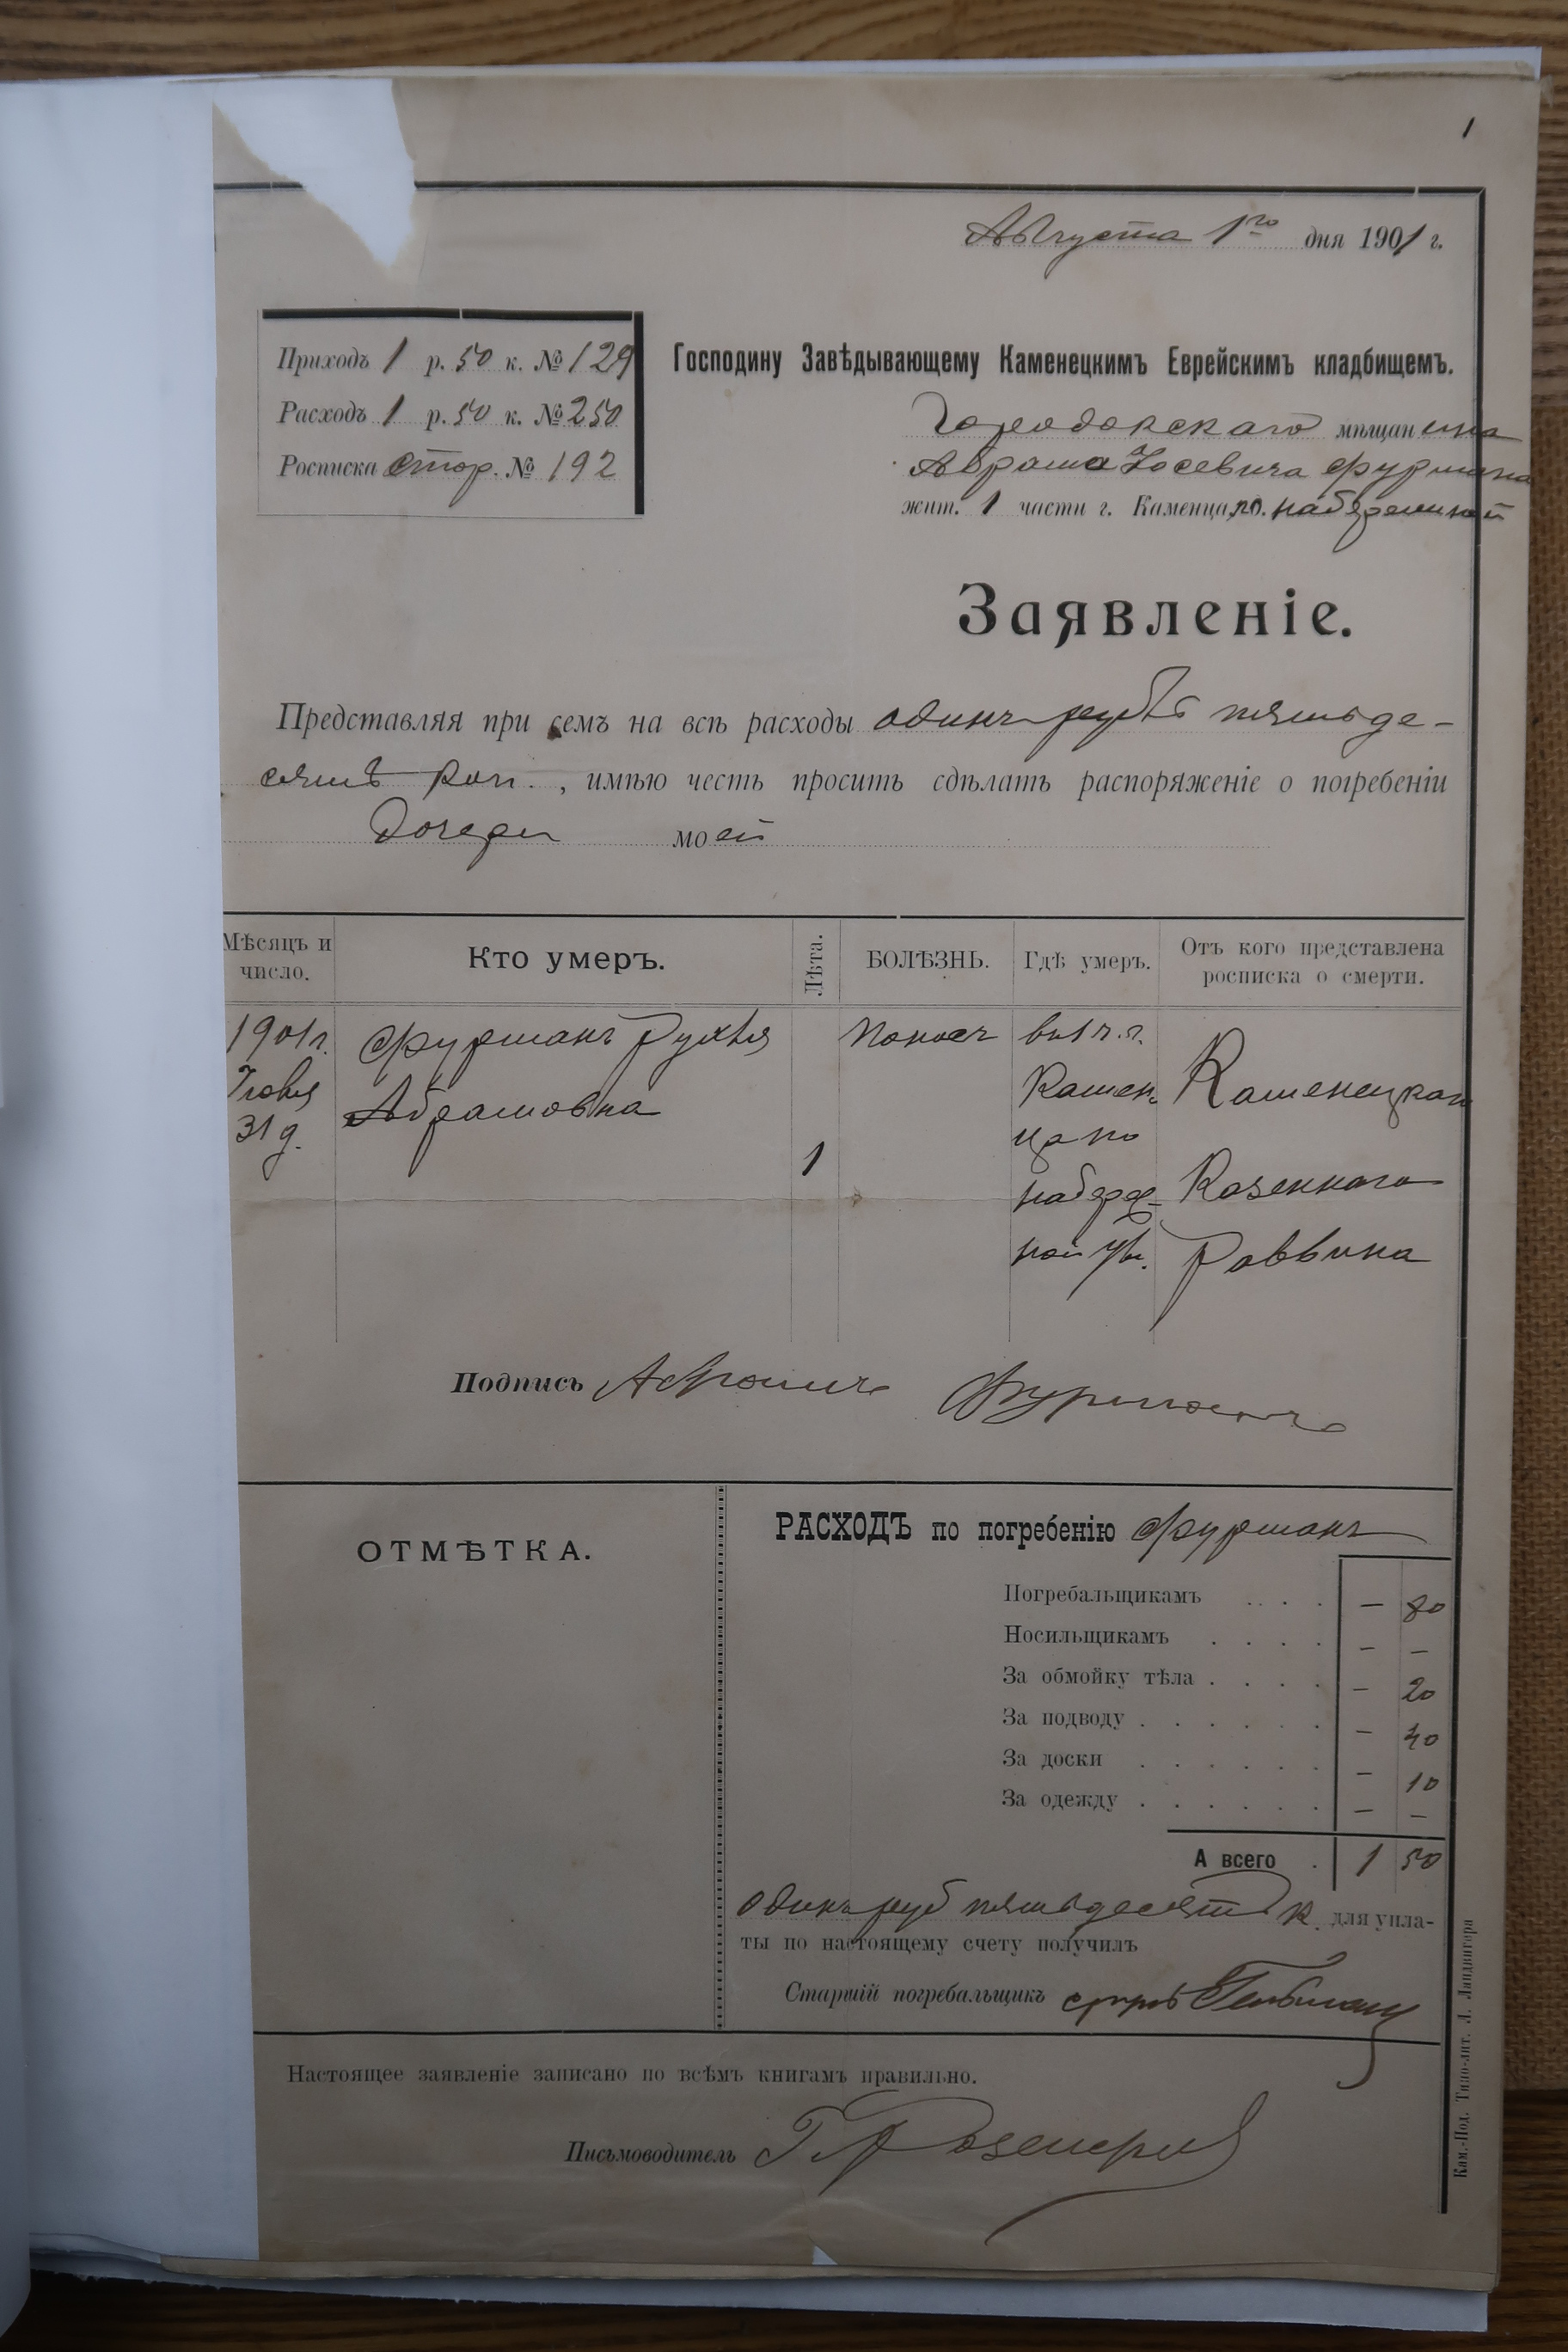 1
Августа 1го дня 1901 г.
Приходъ 1 р. 50 к. № 129
Расходъ 1 р. 50 к. № 250
Росписка стор. № 192
Господину Завѣдывающему Каменецкимъ Еврейскимъ кладбищемъ.
Городокскаго мѣщанина
Абрама Іосевича Фурмана
жит. 1 части г. Каменца, по набережной
Заявленіе.
Представляя при семъ на всѣ расходы одинъ рубль пятьде-
сятъ коп., имѣю честь просить сдѣлать распоряженіе о погребеніи
Дочери моей
Мѣсяцъ и число.
Кто умеръ.
Лѣта.
БОЛѢЗНЬ.
Гдѣ умеръ.
Отъ кого представлена росписка о смерти.
1901 г.
Іюля
31 д.
Фурманъ Рухля
Абрамовна
1
Поносъ
въ 1 ч. г.
Камен-
ца по
набереж-
ной ул.
Каменецкаго
Казеннаго
Раввина
Подпись Абрамъ Фурманъ
ОТМѢТКА.
РАСХОДЪ по погребенію Фурманъ
Погребальщикамъ . . . . — 80
Носильщикамъ . . . . — —
За обмойку тѣла . . . . — 20
За подводу . . . . . . — 40
За доски . . . . . . — 10
За одежду . . . . . . — —
А всего . 1 50
одинъ руб пятьдесятъ к. для упла-
ты по настоящему счету получилъ
Старшій погребальщикъ
Настоящее заявленіе записано по всѣмъ книгамъ правильно.
Письмоводитель
Кам.-Под. Типо-лит. Л. Ландвигера